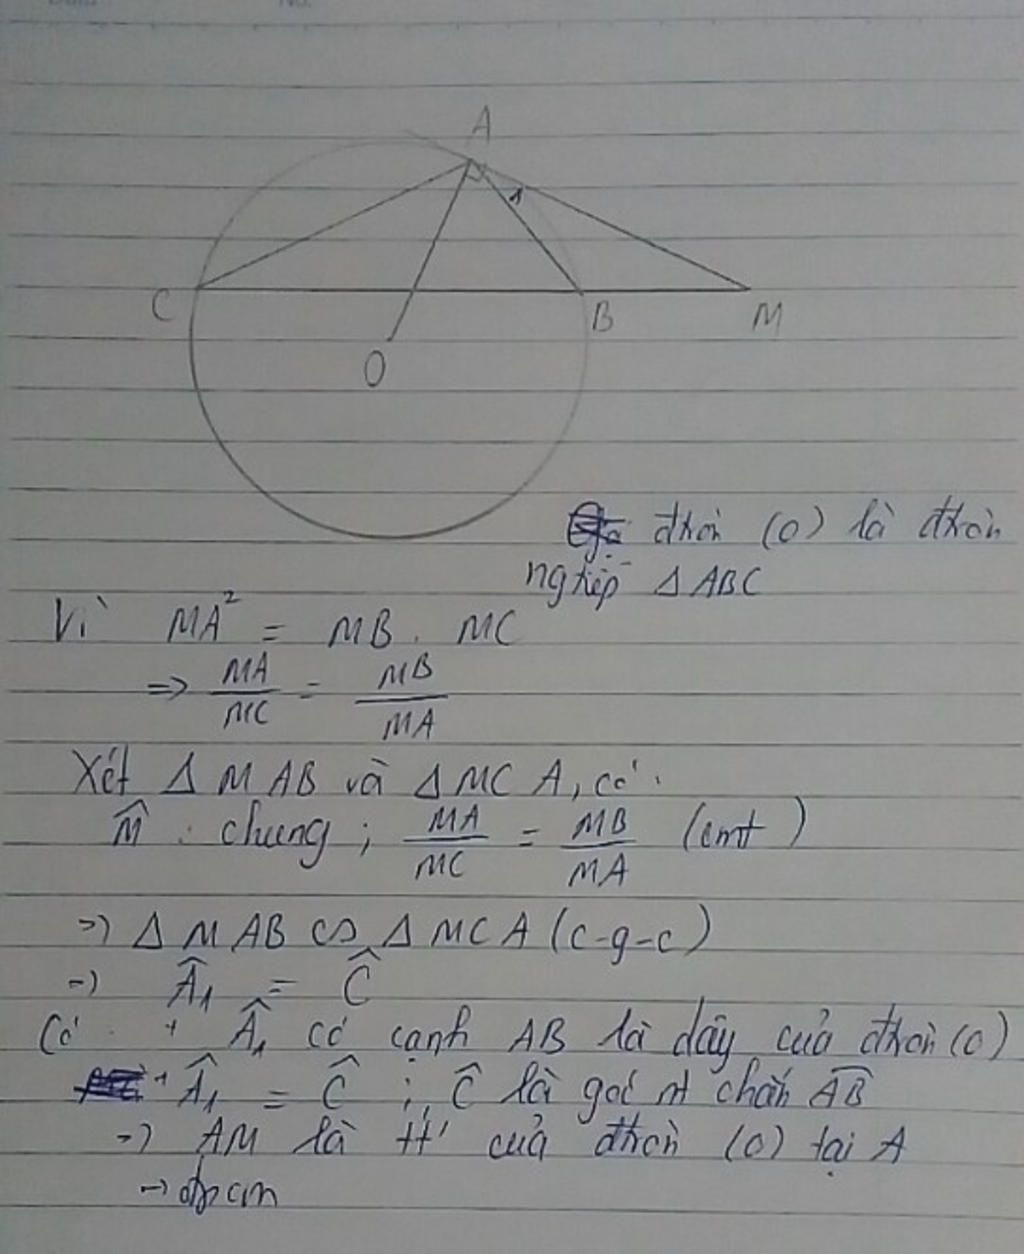 A
1
C
B
M
O
đtròn (O) là đtròn
ngtiếp Δ ABC
Vì MA² = MB . MC
=> MA/MC = MB/MA
Xét Δ MAB và Δ MCA, có:
M̂ : chung ; MA/MC = MB/MA (cmt)
=> Δ MAB ∽ Δ MCA (c-g-c)
=> Â₁ = Ĉ
Có : + Â₁ có cạnh AB là dây của đtròn (O)
+ Â₁ = Ĉ ; Ĉ là góc nt chắn AB
=> AM là tt' của đtròn (O) tại A
-> đpcm